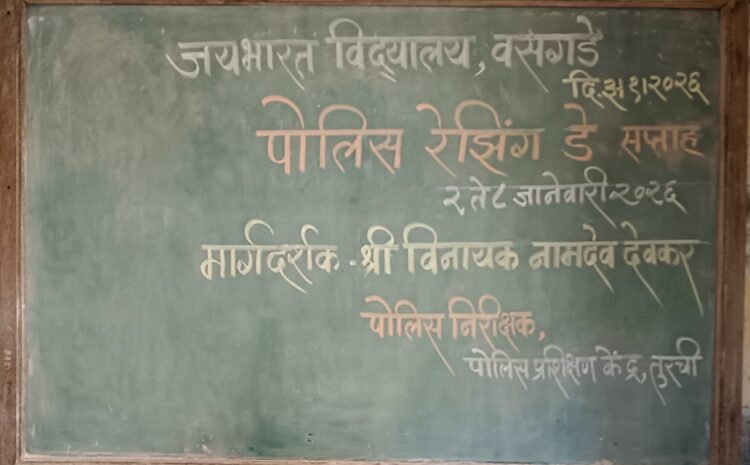 जयभारत विद्यालय, वसगडे
दि. ३।१।२०२६
पोलिस रेझिंग डे सप्ताह
२ ते ८ जानेवारी २०२६
मार्गदर्शक - श्री विनायक नामदेव देवकर
पोलिस निरीक्षक,
पोलिस प्रशिक्षण केंद्र, तुरची